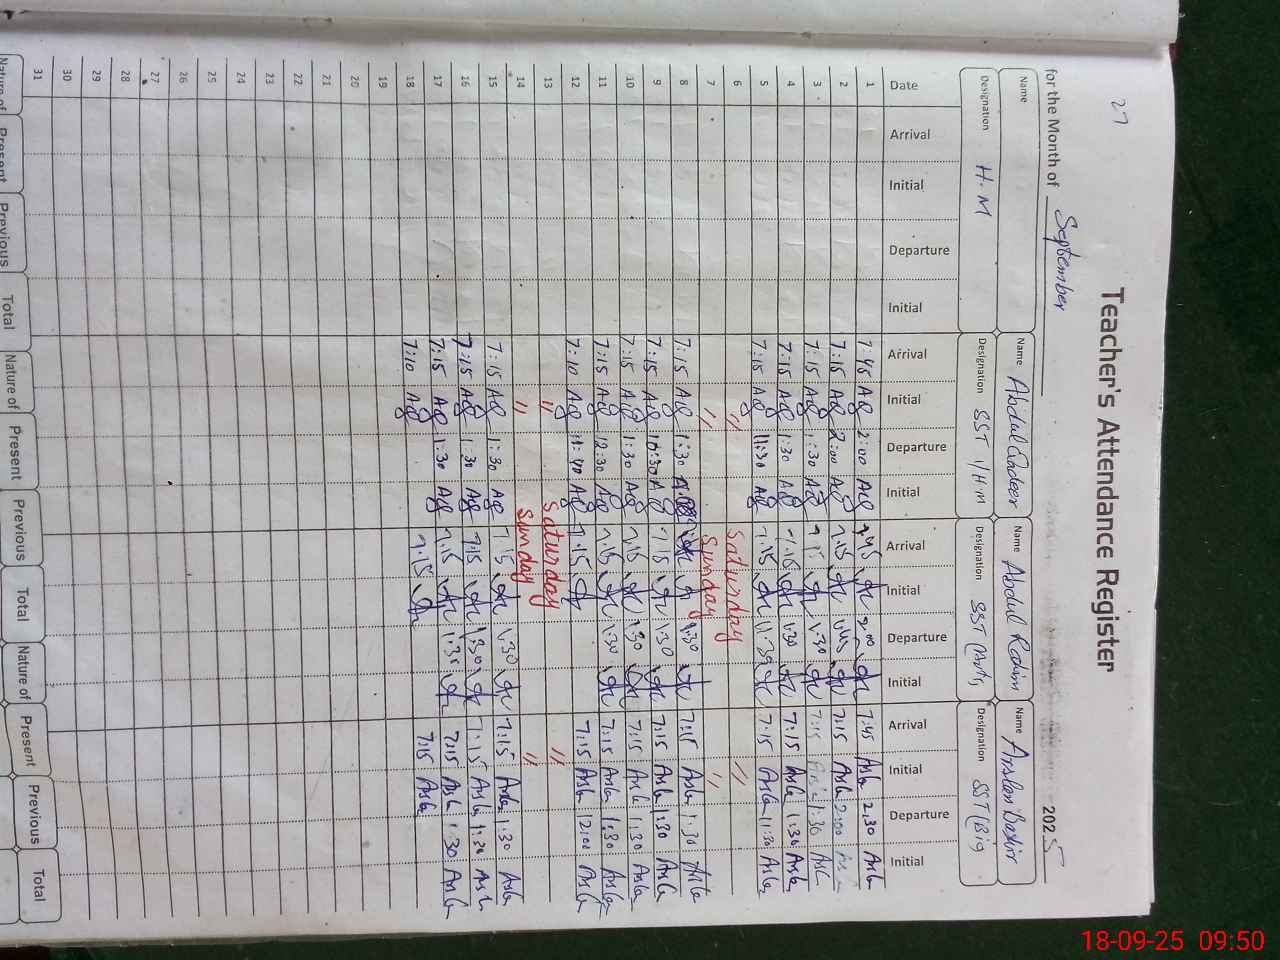 27
Teacher's Attendance Register
for the Month of September 2025
Name Name Abdul Qadeer Name Abdul Rahim Name Arslan Bashir
Designation H.M Designation SST I/H.M Designation SST (Arts) Designation SST (Bio
Date Arrival Initial Departure Initial Arrival Initial Departure Initial Arrival Initial Departure Initial Arrival Initial Departure Initial
1 7:45 AQ 2:00 AQ 7:45 2:00 7:45 Arsla 2:30 Arsla
2 7:15 AQ 2:00 AQ 7:15 1:45 7:15 Arsla 2:00 Arsla
3 7:15 AQ 1:30 AQ 7:15 1:30 7:15 Arsla 1:30 Arsla
4 7:15 AQ 1:30 AQ 7:15 1:30 7:15 Arsla 1:30 Arsla
5 7:15 AQ 11:30 AQ 7:15 11:30 7:15 Arsla 11:30 Arsla
6 " Saturday "
7 " Sunday "
8 7:15 AQ 1:30 1:30 7:15 Arsla 1:30 Arsla
9 7:15 AQ AQ 7:15 1:30 7:15 Arsla 1:30 Arsla
10 7:15 AQ 1:30 AQ 7:15 1:30 7:15 Arsla 1:30 Arsla
11 7:15 AQ 12:30 AQ 7:15 1:30 7:15 Arsla 1:30 Arsla
12 7:10 AQ 11:40 AQ 7:15 7:15 Arsla 12:00 Arsla
13 " Saturday "
14 " Sunday "
15 7:15 AQ 1:30 AQ 7:15 1:30 7:15 Arsla 1:30 Arsla
16 7:15 AQ 1:30 AQ 7:15 1:30 7:15 Arsla 1:30 Arsla
17 7:15 AQ 1:30 AQ 7:15 1:30 7:15 Arsla 1:30 Arsla
18 7:10 AQ 7:15 7:15 Arsla
19
20
21
22
23
24
25
26
27
28
29
30
31
Nature of Present Previous Total Nature of Present Previous Total Nature of Present Previous Total
18-09-25 09:50